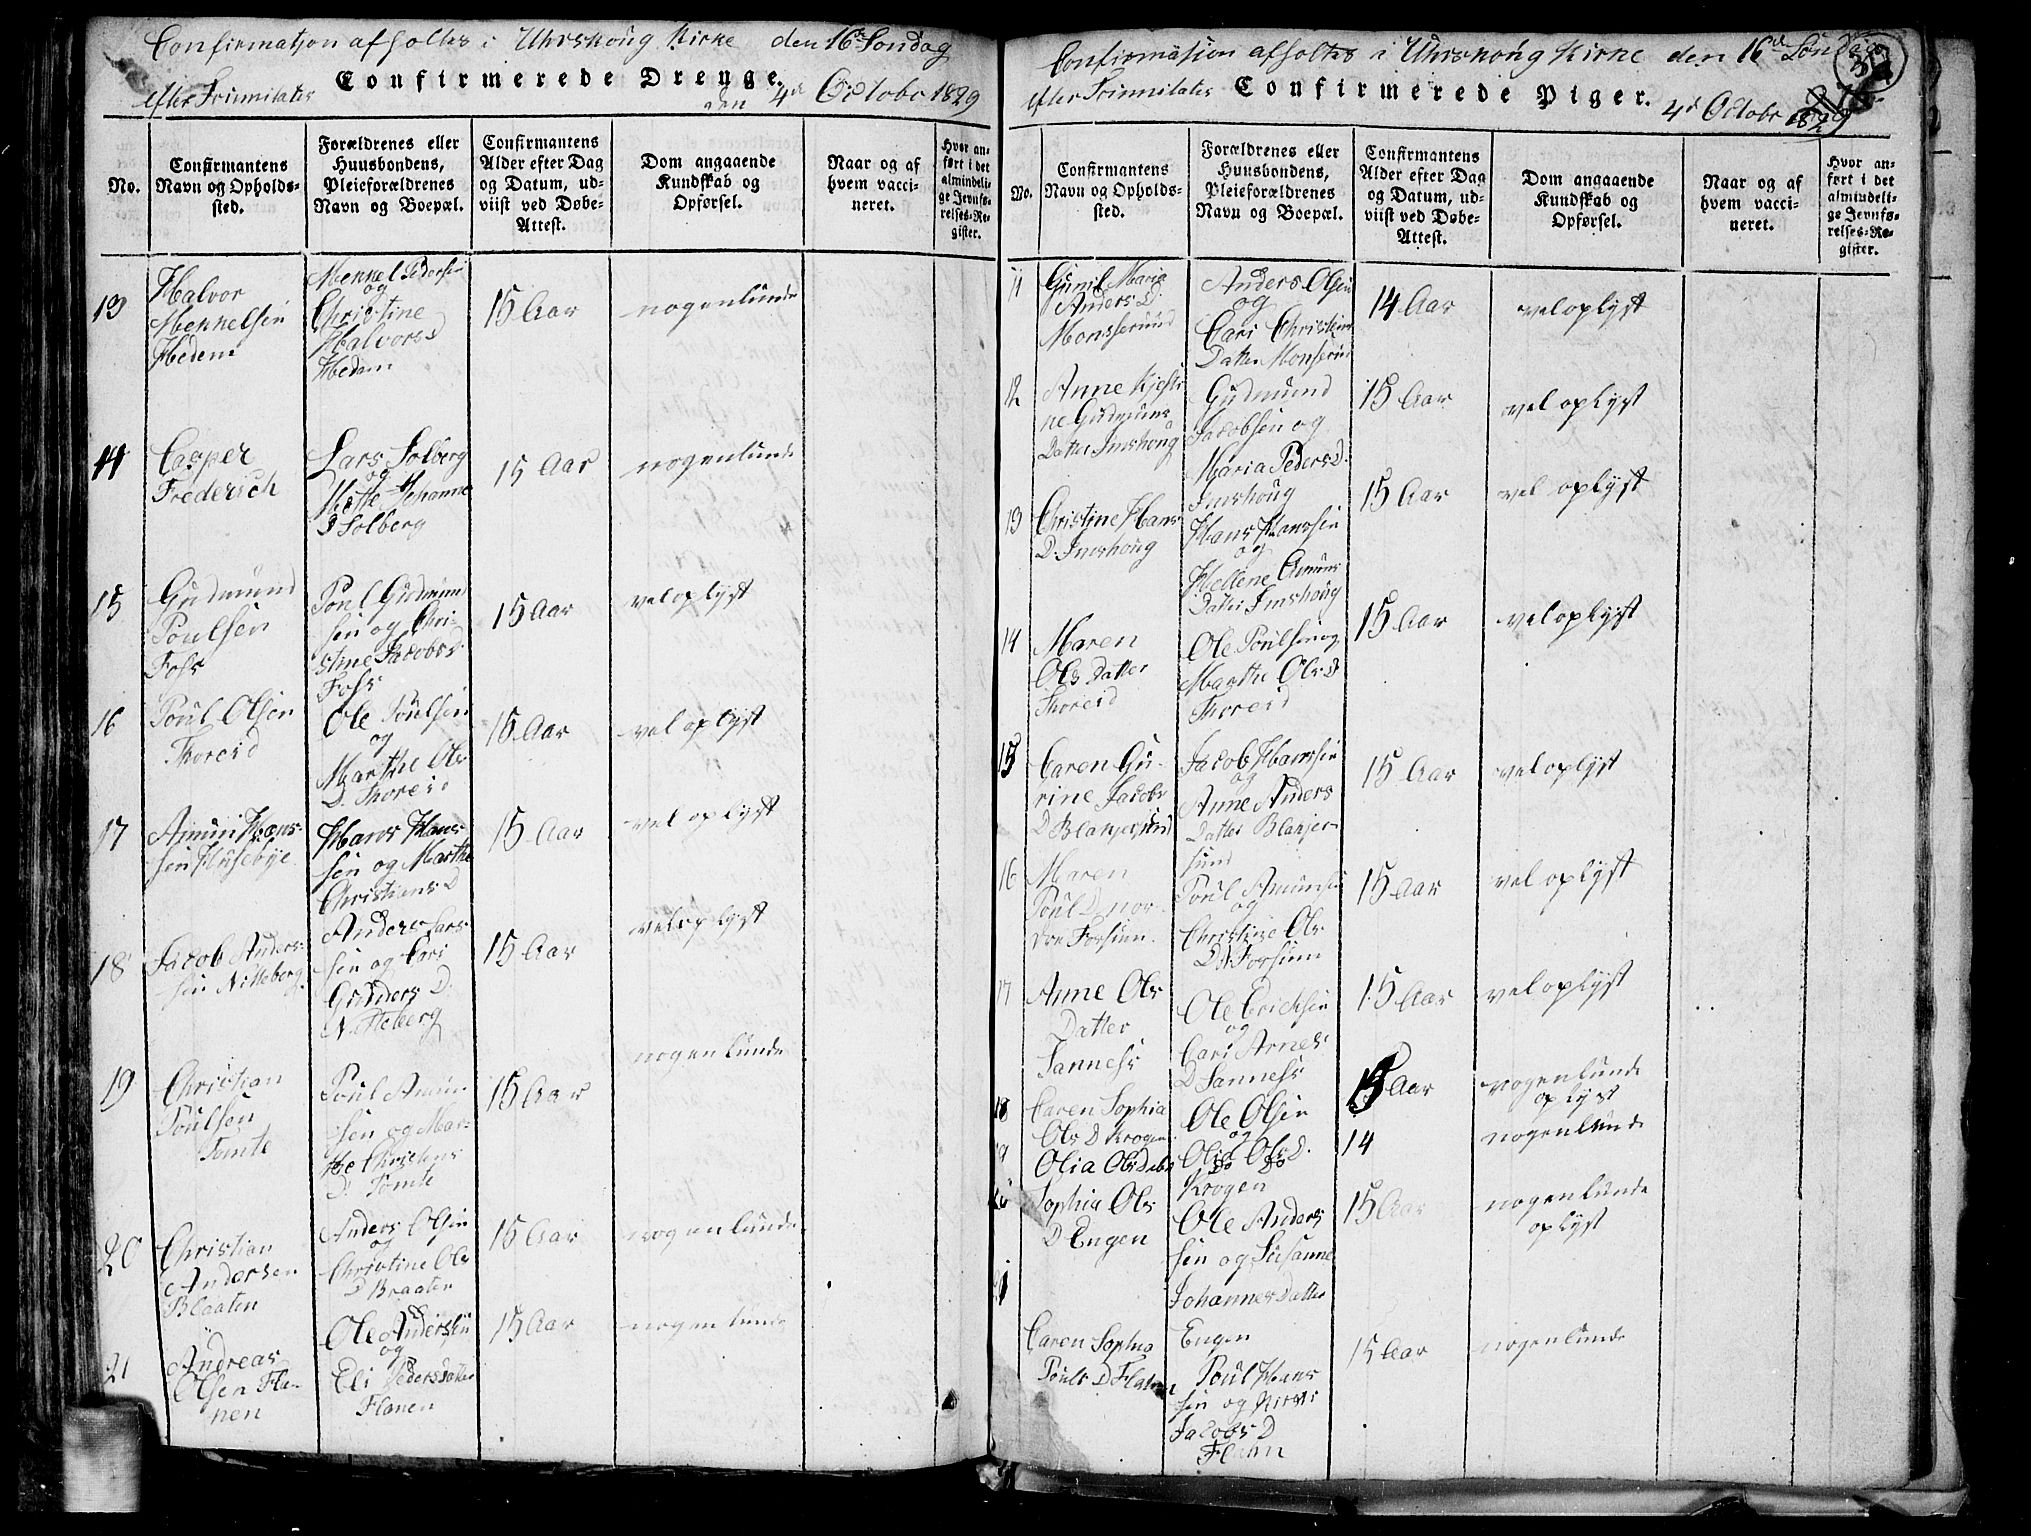 Confirmation afholtes i Uhrskoug Kirke den 16de Søndag
efter Trinnitatis
Confirmerede Drenge.
den 4de Octobr 1829
No.
Confirmantens
Navn og Opholds-
sted.
Forældrenes eller
Huusbondens,
Pleieforældrenes
Navn og Boepæl.
Confirmantens
Alder efter Dag
og Datum, ud-
viist ved Døbe-
Attest.
Dom angaaende
Kundskab og
Opførsel.
Naar og af
hvem vacci-
neret.
Hvor an-
ført i det
almindeli-
ge Jevnfø-
relses-Re-
gister.
13
Halvor
Mekkelsen
Hedem
Mekkel Pedersen
og
Christine
Halvors D
Hedem
15 Aar
nogenlunde
14
Casper
Frederich
Lars Solberg
og
Mette Johanne
D Solberg
15 Aar
nogenlunde
15
Gudmund
Poulsen
Foss
Poul Gudmund
sen og Chri-
stine Jacobs D
Foss
15 Aar
vel oplyst
16
Poul Olsen
Thoreid
Ole Poulsen
og
Marthe Ols
D. Thoreid
15 Aar
vel oplyst
17
Amun Hans-
sen Husebye
Hans Hans-
sen og Marthe
Christians D
15 Aar
vel oplyst
18
Jacob Anders-
sen Nitteberg
Anders Lars-
sen og Cari
Gunders D.
Nitteberg
15 Aar
vel oplyst
19
Christian
Poulsen
Tomte
Poul Amun
sen og Mar-
the Christens
D. Tomte
15 Aar
nogenlunde
20
Christian
Andersen
Blaaten
Anders Olsen
og
Christine Ols
D Braaten
15 Aar
nogenlunde
21
Andreas
Olsen Fla-
nen
Ole Andersen
og
Eli Pedersdatter
Flanen
15 Aar
nogenlunde
Confirmasion afholtes i Uhrskoug Kirke den 16de Søndag
efter Trinnitatis
Confirmerede Piger.
4de Octobr 1829
No.
Confirmantens
Navn og Opholds-
sted.
Forældrenes eller
Huusbondens,
Pleieforældrenes
Navn og Boepæl.
Confirmantens
Alder efter Dag
og Datum, ud-
viist ved Døbe-
Attest.
Dom angaaende
Kundskab og
Opførsel.
Naar og af
hvem vacci-
neret.
Hvor an-
ført i det
almindeli-
ge Jevnfø-
relses-Re-
gister.
11
Gunil Maria
Anders D.
Monserund
Anders Olsen
og
Cari Christens
Datter Monserud
14 Aar
vel oplyst
12
Anne Kjesti
ne Gudmuns
Datter Imshoug
Gudmund
Jacobsen og
Maria Peders D.
Imshoug
15 Aar
vel oplyst
13
Christine Hans
D. Imshoug
Hans Hanssen
og
Hellene Amuns
Datter Imshoug
15 Aar
vel oplyst
14
Maren
Ols Datter
Thoreid
Ole Poulsen og
Marthe Ols D
Thoreid
15 Aar
vel oplyst
15
Caren Gu-
rine Jacobs
D Blakjersund
Jacob Hanssen
og
Anne Anders
Datter Blakjer-
sund
15 Aar
vel oplyst
16
Maren
Poul D nor-
dre Forsum
Poul Amunse
og
Christine Ols
D. N. Forsum
15 Aar
vel oplyst
17
Anne Ols
Datter
Sanness
Ole Ericksen
og
Cari Arnes
D Sanness
15 Aar
vel oplyst
18
Caren Sophia
Ols D Krogen
Ole Olsen
og
Olia Ols D.
Krogen
15 Aar
nogenlunde
oplyst
19
Olia Ols Datter
Do Do
14
nogenlunde
20
Sophia Ols
D Engen
Ole Anders
sen og Susanne
Johannes Datter
Engen
15 Aar
nogenlunde
oplyst
21
Caren Sophia
Pouls D Flatnen
Poul Hans
sen og Kirsti
Jacobs D
Flatnen
15 Aar
nogenlunde